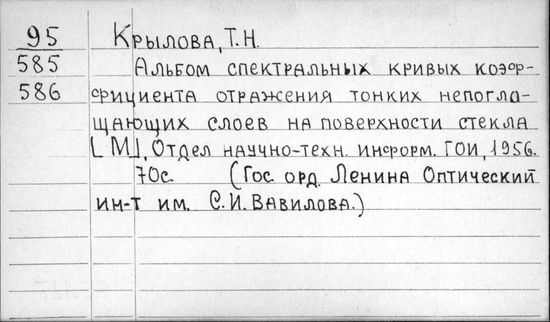 95 Крылова, Т.Н.
585 Альбом спектральных кривых коэф-
586 фициента отражения тонких непогла-
щающих слоев на поверхности стекла
[М], Отдел научно-техн. информ. ГОИ, 1956.
70с. (Гос. орд. Ленина Оптический
ин-т им. С.И. Вавилова.)